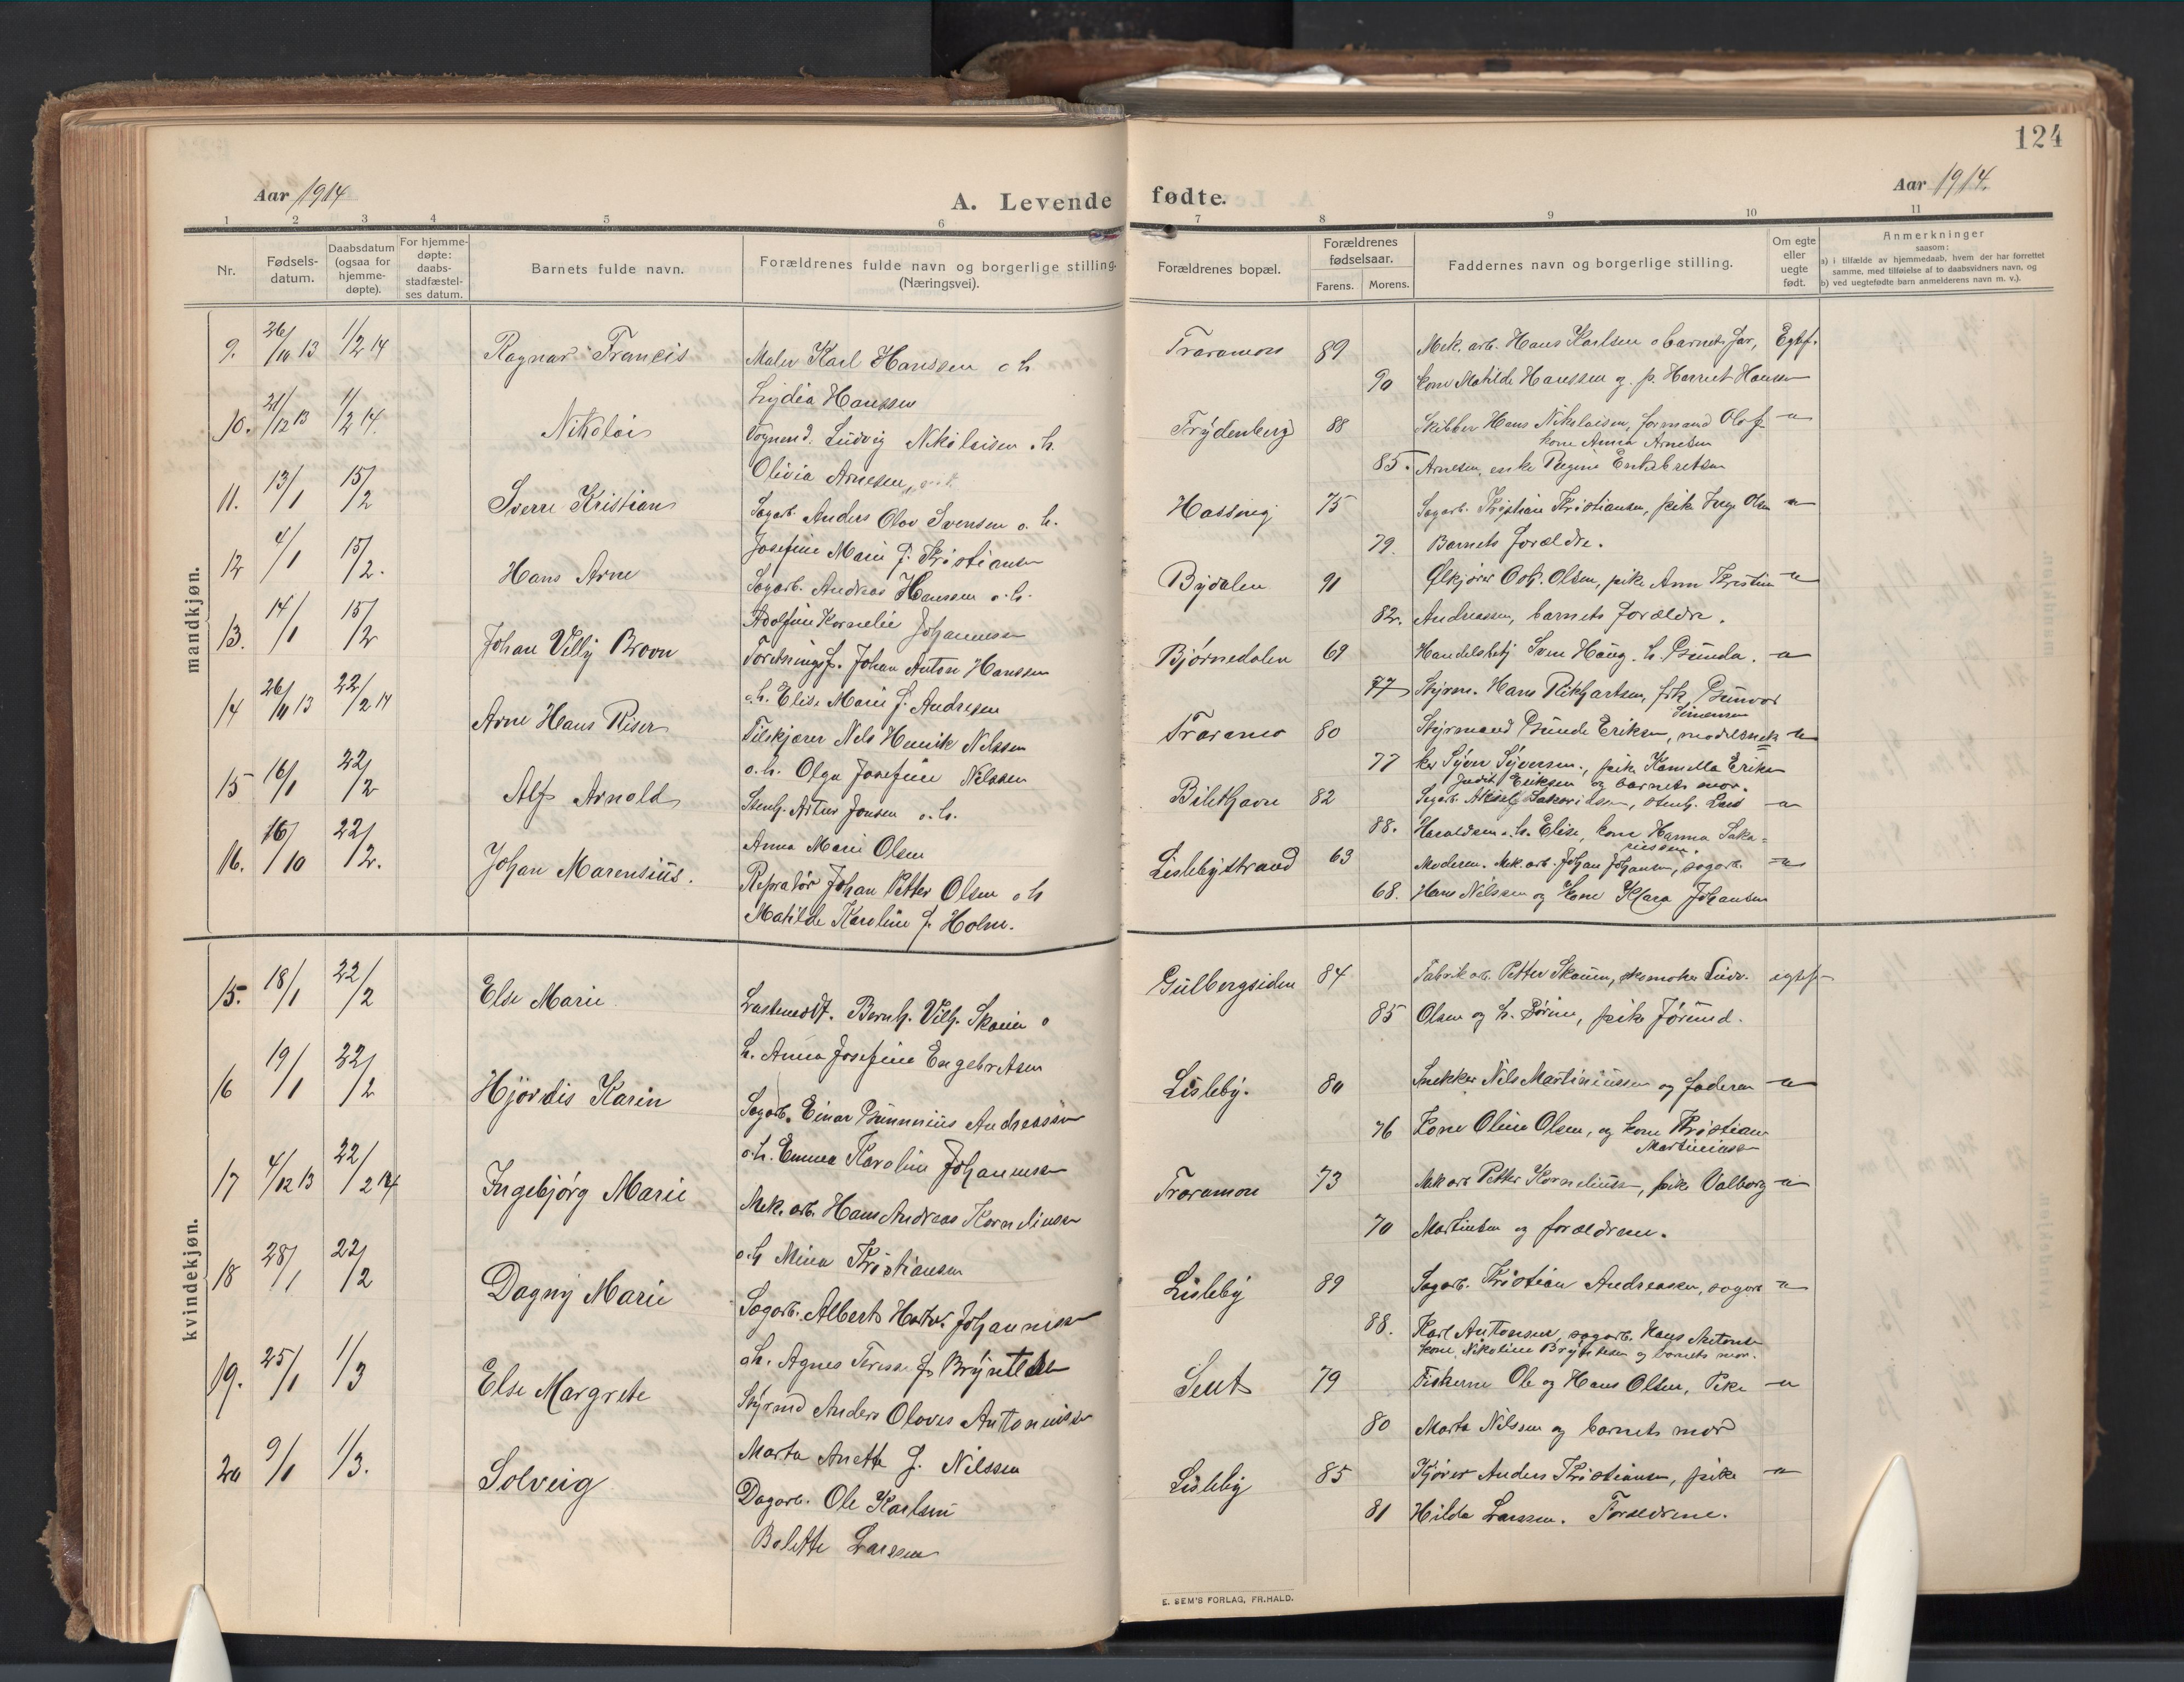 124
Aar 1914
A. Levende fødte.
Aar 1914.
1 2 3 4 5 6 7 8 9 10 11
Nr.
Fødsels-
datum.
Daabsdatum
(ogsaa for
hjemme-
døpte).
For hjemme-
døpte:
daabs-
stadfæstel-
ses datum.
Barnets fulde navn.
Forældrenes fulde navn og borgerlige stilling.
(Næringsvei).
Forældrenes bopæl.
Forældrenes
fødselsaar.
Farens. Morens.
Faddernes navn og borgerlige stilling.
Om egte
eller
uegte
født.
Anmerkninger
saasom:
a) i tilfælde av hjemmedaab, hvem der har forrettet
samme, med tilføielse af to daabsvidners navn, og
b) ved uegtefødte barn anmelderens navn m. v.).
mandkjøn.
9. 26/10 13 1/2 14 Ragnar Francis Maler Karl Hanssen o h Traramoen 89 Mek. arb. Hans Karlsen o barnets far, Egtef.
Lydia Hanssen 90 kone Matilde Hanssen og p. Harriet Hanssen
10. 21/12 13 1/2 14. Nikolai Vognmd. Ludvig Nikolaisen o.h. Trydenberg 88 Skibber Hans Nikolaisen, formand Olof -"-
kone Anna Arnesen
Olivia Arnesen 85. Arnesen, enke Regine Engebretsen
11. 13/1 15/2 Sverre Kristian Sagarb. Anders Olov Svensen o. h. Hassing 75 Sagarb. Kristian Kristiansen, pike Inga Olsen -"-
Josefine Marie f. Kristiansen 79. Barnets forældre.
12 4/1 15/2. Hans Arne Sagarb. Andreas Hanssen o. h. Bydalen 91 Ølkjører Osk. Olsen, pike Ann Kristin -"-
Adolfine Kornelie Johannesen 82. Andreassen, barnets forældre.
13. 14/1 15/2 Johan Villy Broon Forretningsf. Johan Anton Hanssen Bjørnedalen 69 Handelsbetj Sven Haug. h. Gunda. -"-
o.h. Elise Marie f. Andresen 77 Styrm. Hans Rikhartsen, frk Gunvor
Simensen
14 26/11 13 22/2 14 Arne Hans Riser Filskjærer Nels Henrik Nelssen Traramo 80 Styrmand Gunde Eriksen, modelsnek -"-
o.h. Olga Josefine Nelssen 77 ker Syver Syversen, pike Kamilla Eriksen
Judit Eriksen og barnets mor.
15 16/1 22/2 Alf Arnold Stenh. Artur Jonsen o. h. Bilethavn 82 Sagarb. Aksel Sakariassen, stenh. -"-
Anna Marie Olsen 88. Haraldsen o. h. Elise, kone Hanna Saka-
riassen.
16. 16/10 22/2. Johan Marensius. Repratør Johan Petter Olsen o h Lislebystrand 63 Moderen. Mek. arb. Johan Johansen, sagarb. -"-
Matilde Karoline f. Holm. 68. Hans Nilssen og kone Klara Johansen
kvindekjøn.
15. 18/1 22/2 Else Marie Bernh. Vilh. Skauen o Gulbergsiden 84 Fabrik arb. Petter Skauen, skomaker Ludv. egtef-
h. Anna Josefine Engebretsen 85 Olsen og h. Børine, pike Jørund.
16 19/1 22/2 Hjørdis Karin Sagarb. Einar Gunnerius Andreassen Lisleby. 80 Snekker Nils Martiniussen og faderen -"-
o.h. Emma Karoline Johannesen 76 Kone Oline Olsen, og kone Kristian
Martiniusen
17 4/12 13 22/2 14 Ingebjørg Marie Mek. arb. Hans Andreas Korneliusen Traramoen 73 Mek arb Petter Korneliusen, pike Valborg -"-
o.h Mina Kristiansen 70 Martinsen og forældrene.
18 28/1 22/2 Dagny Marie Sagarb. Albert Hartv. Johannesen Lisleby 89 Sagarb. Kristian Andreassen, sagarb -"-
o.h. Agnes Terese f. Bryntesen 88. Karl Antonsen, sagarb. Hans Antonsen
kone Nikoline Bryntesen og barnets mor.
19. 25/1 1/3 Else Margrete Styrmd Anders Olaves Antonisen Seut 79 Fiskerne Ole og Hans Olsen, Pike -"-
Marta Anette f. Nilssen 80 Marta Nilssen og barnets mor
20 9/1 1/3. Solveig Dagarb. Ole Karlsen Lisleby 85 Kjører Anders Kristiansen, pike -"-
Bolette Larssen 81 Hilda Larssen. Forældrene.
E. SEM'S FORLAG, FR.HALD.